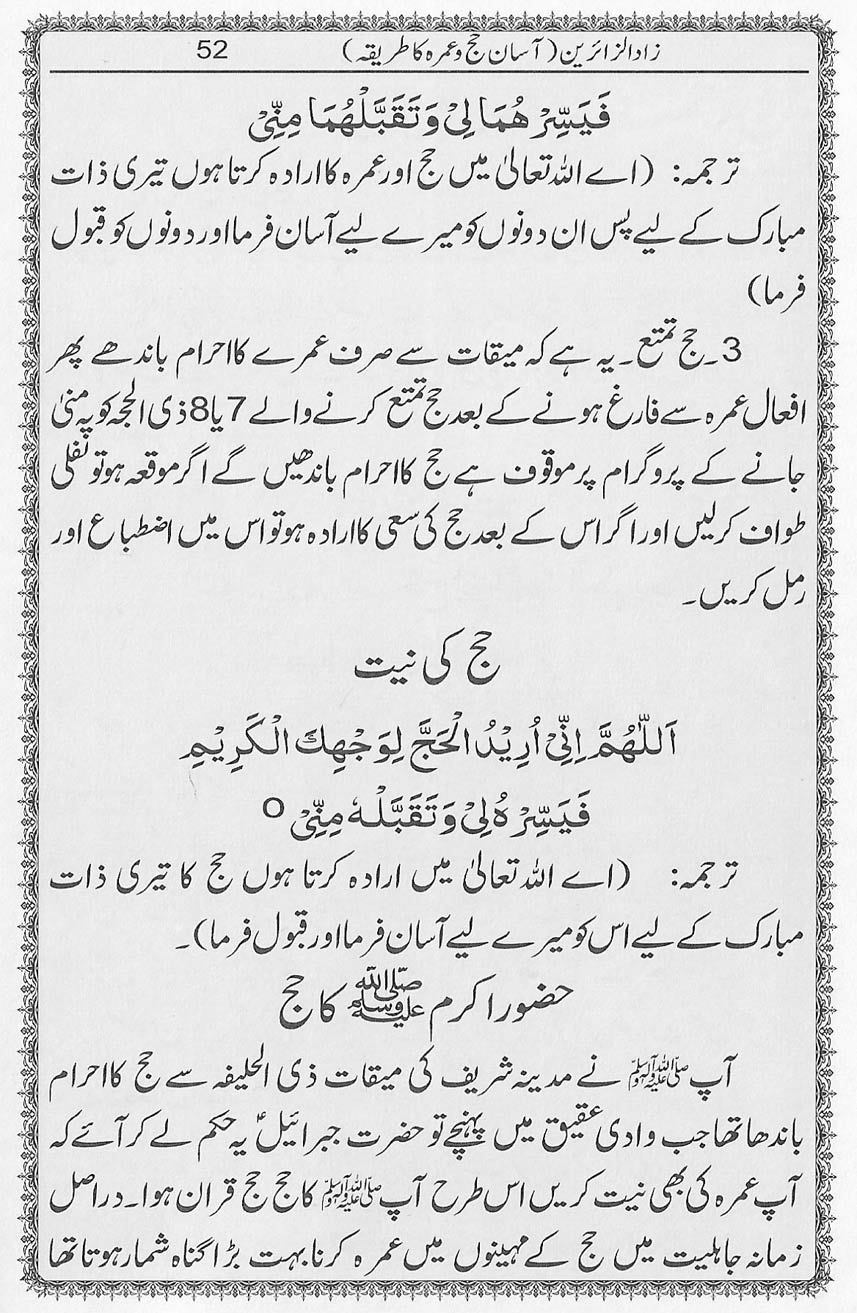 زاد الزائرین (آسان حج و عمرہ کا طریقہ) 52
فَيَسِّرْ هُمَا لِیْ وَ تَقَبَّلْهُمَا مِنِّیْ
ترجمہ: (اے اللہ تعالیٰ میں حج اور عمرہ کا ارادہ کرتا ہوں تیری ذات
مبارک کے لیے پس ان دونوں کو میرے لیے آسان فرما اور دونوں کو قبول
فرما)
3۔ حج تمتع۔ یہ ہے کہ میقات سے صرف عمرے کا احرام باندھے پھر
افعال عمرہ سے فارغ ہونے کے بعد حج تمتع کرنے والے 7 یا 8 ذی الحجہ کو یہ منیٰ
جانے کے پروگرام پر موقوف ہے حج کا احرام باندھیں گے اگر موقعہ ہو تو نفلی
طواف کر لیں اور اگر اس کے بعد حج کی سعی کا ارادہ ہو تو اس میں اضطباع اور
رمل کریں۔
حج کی نیت
اَللّٰهُمَّ اِنِّیْ اُرِيْدُ الْحَجَّ لِوَجْهِكَ الْكَرِيْمِ
فَيَسِّرْهُ لِیْ وَ تَقَبَّلْهُ مِنِّیْ ○
ترجمہ: (اے اللہ تعالیٰ میں ارادہ کرتا ہوں حج کا تیری ذات
مبارک کے لیے اس کو میرے لیے آسان فرما اور قبول فرما)۔
حضور اکرم ﷺ کا حج
آپ ﷺ نے مدینہ شریف کی میقات ذی الحلیفہ سے حج کا احرام
باندھا تھا جب وادی عقیق میں پہنچے تو حضرت جبرائیلؑ یہ حکم لے کر آئے کہ
آپ عمرہ کی بھی نیت کریں اس طرح آپ ﷺ کا حج حج قران ہوا۔ در اصل
زمانہ جاہلیت میں حج کے مہینوں میں عمرہ کرنا بہت بڑا گناہ شمار ہوتا تھا